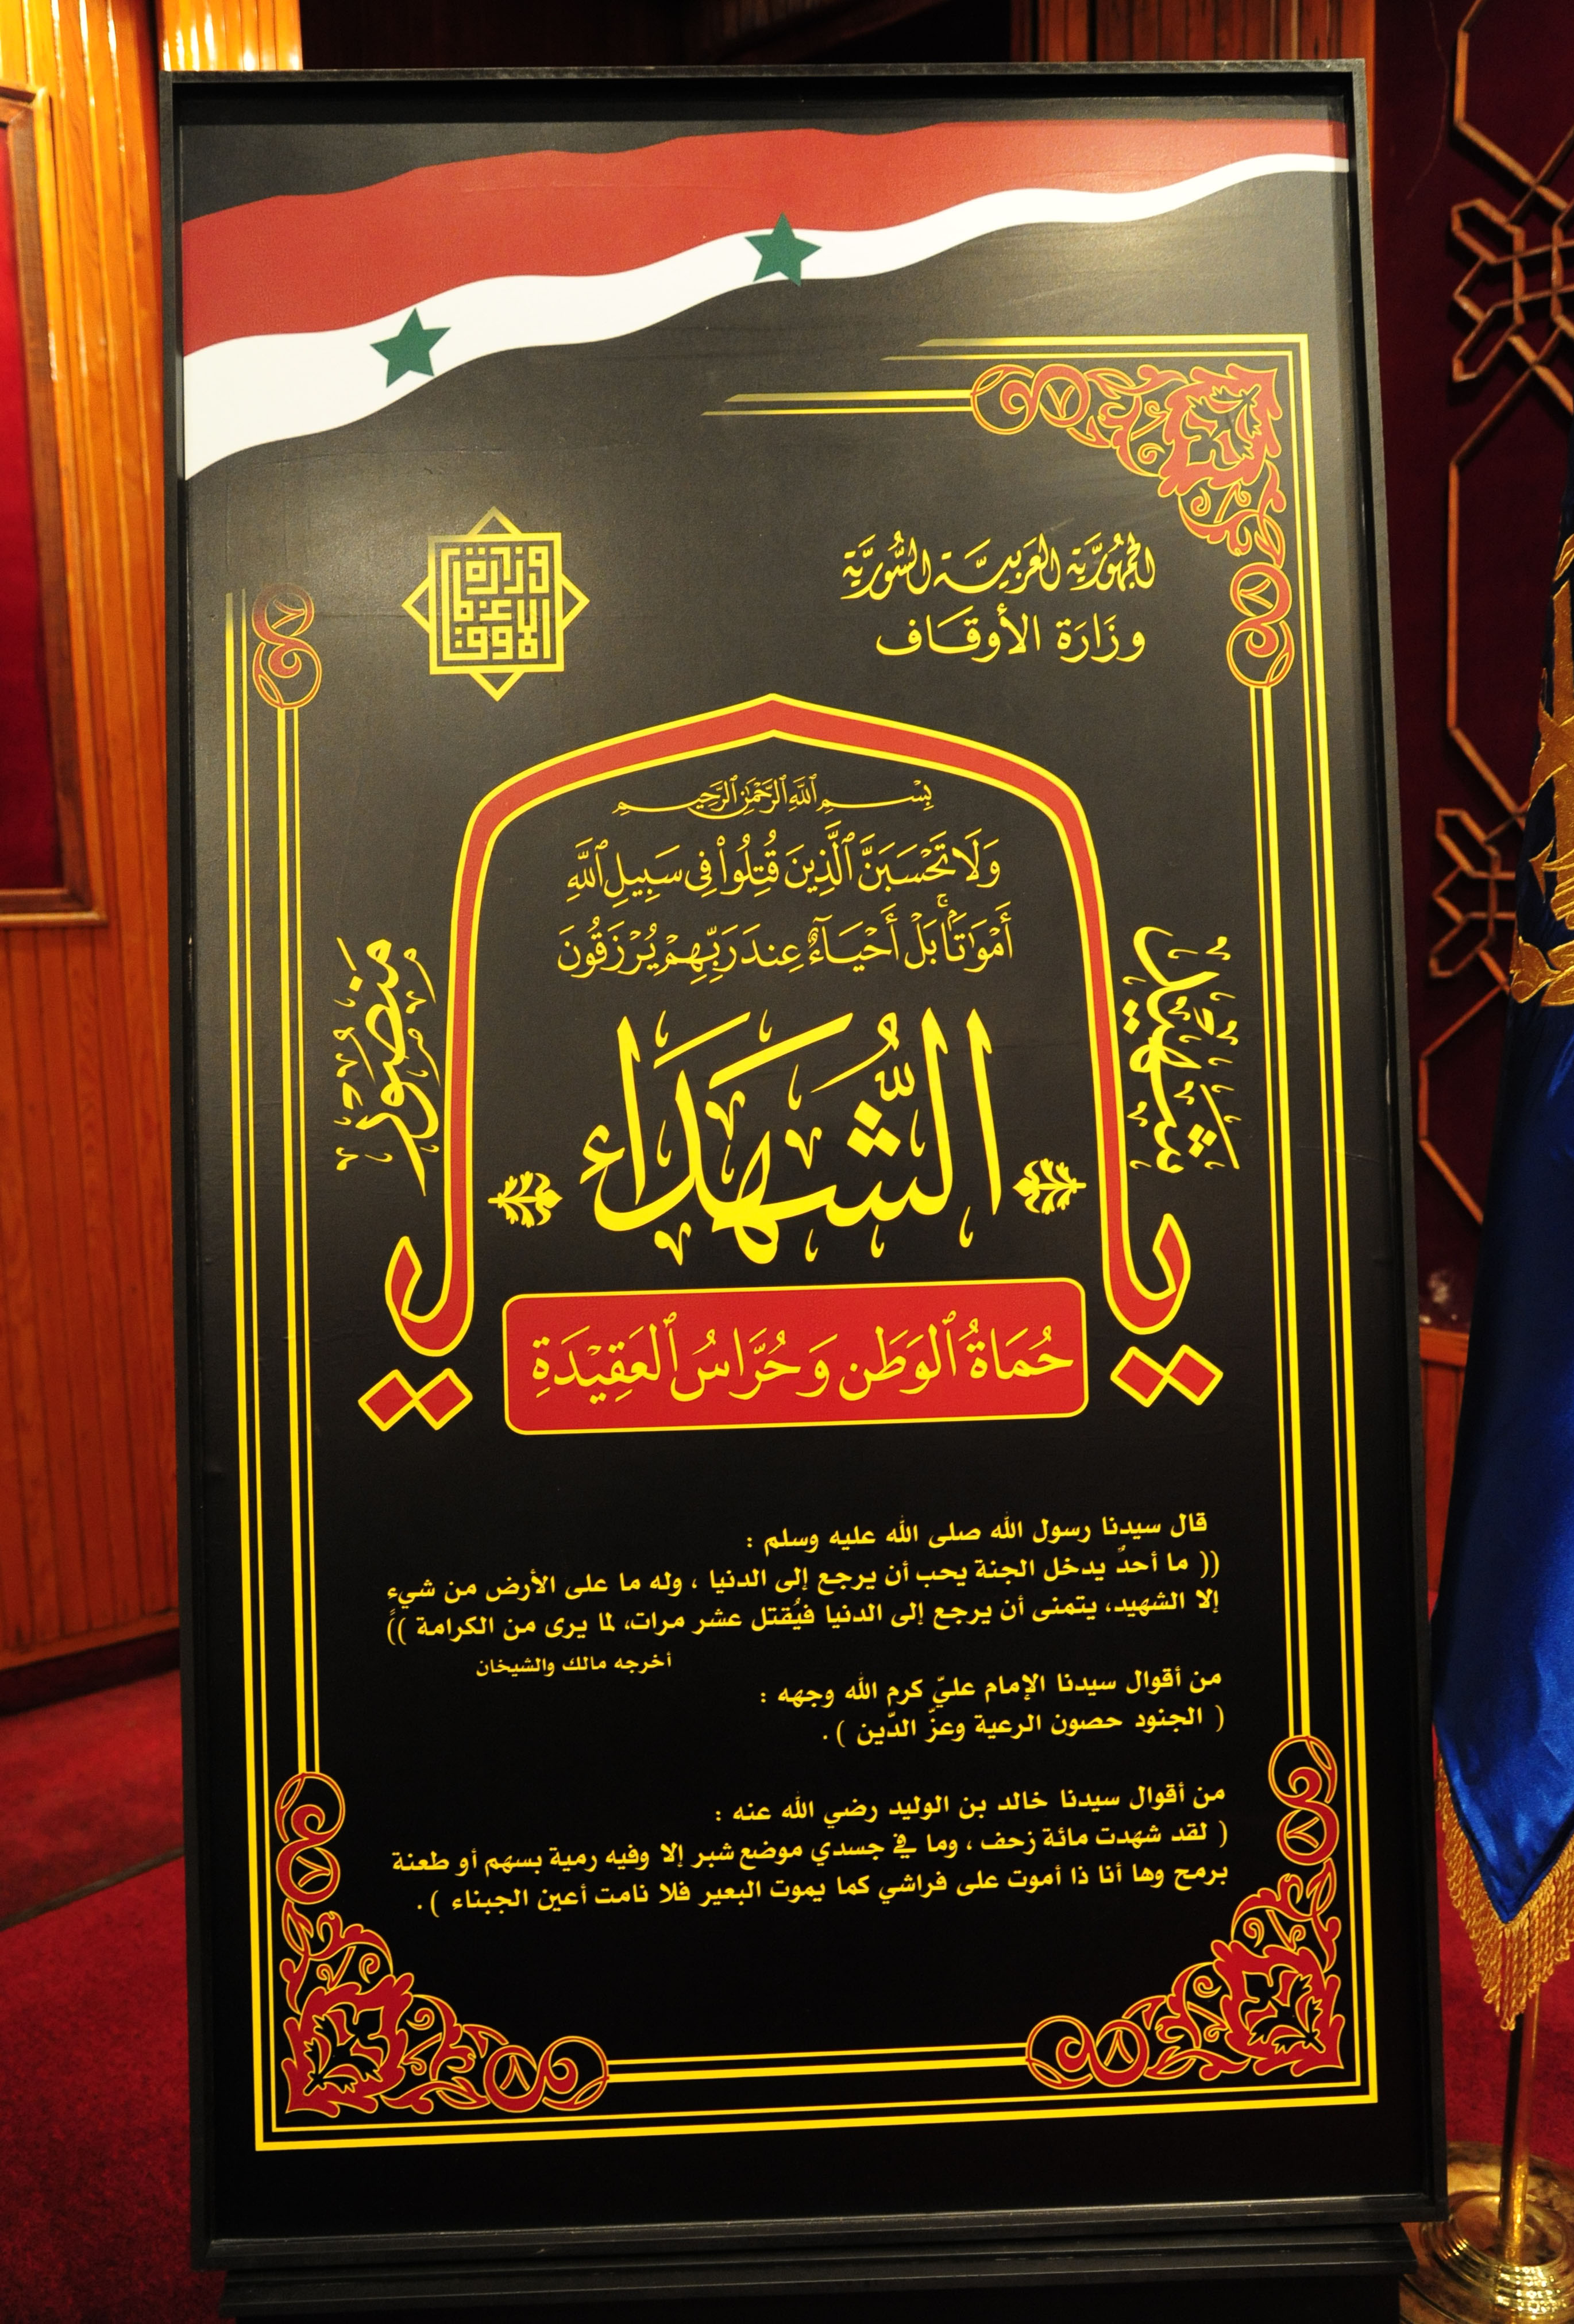 الجُمْهُورِيَّة العَرَبِيَّة السُّورِيَّة
وزَارَة الأَوقَاف
وزارة الأوقاف
بِسْمِ ٱللَّهِ ٱلرَّحْمَٰنِ ٱلرَّحِيمِ
وَلَا تَحْسَبَنَّ ٱلَّذِينَ قُتِلُوا۟ فِى سَبِيلِ ٱللَّهِ
أَمْوَٰتًۢا بَلْ أَحْيَآءٌ عِندَ رَبِّهِمْ يُرْزَقُونَ
شهيد
منصور
الشُّهَدَاء
حُمَاةُ ٱلوَطَن وَحُرَّاسُ ٱلعَقِيْدَةِ
قال سيدنا رسول الله صلى الله عليه وسلم :
(( ما أحدٌ يدخل الجنة يحب أن يرجع إلى الدنيا ، وله ما على الأرض من شيءٍ
إلا الشهيد، يتمنى أن يرجع إلى الدنيا فيُقتل عشر مرات، لما يرى من الكرامة ))
أخرجه مالك والشيخان
من أقوال سيدنا الإمام عليّ كرم الله وجهه :
( الجنود حصون الرعية وعزّ الدّين ) .
من أقوال سيدنا خالد بن الوليد رضي الله عنه :
( لقد شهدت مائة زحف ، وما في جسدي موضع شبر إلا وفيه رمية بسهم أو طعنة
برمح وها أنا ذا أموت على فراشي كما يموت البعير فلا نامت أعين الجبناء ) .